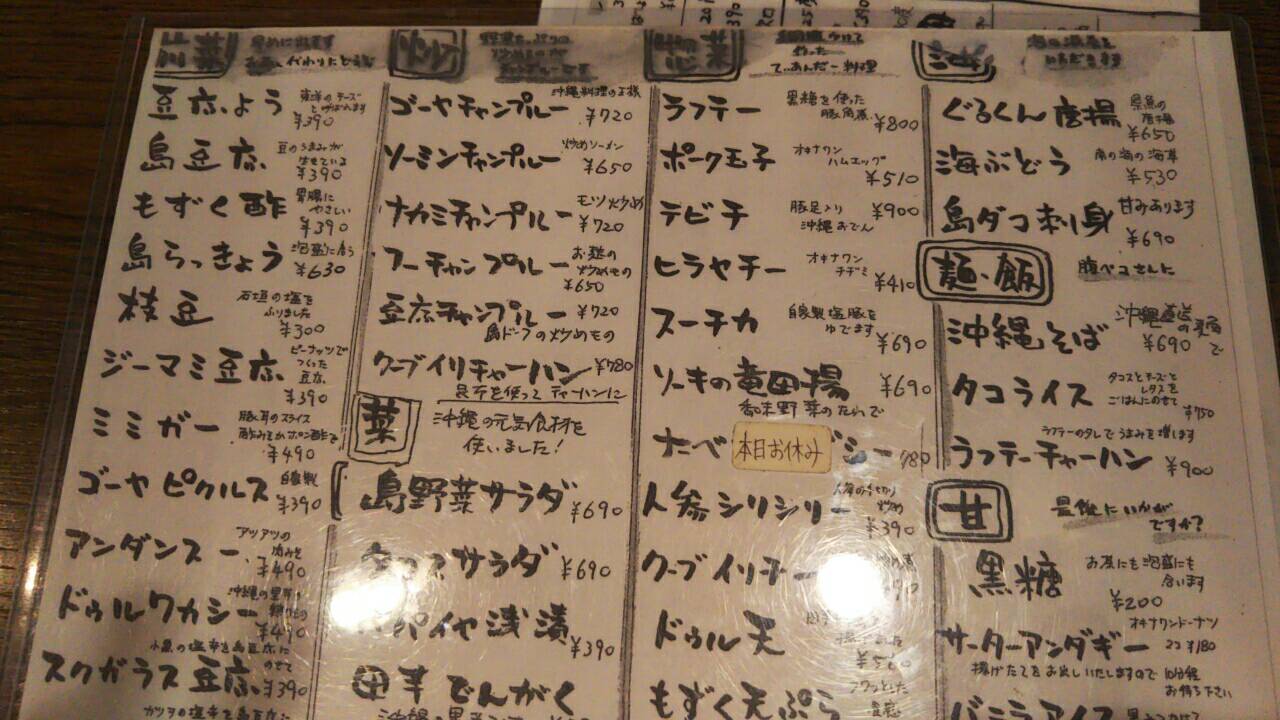 前菜
早めに出ます
お通し代わりにどうぞ
豆腐よう
東洋のチーズ
とよばれます
¥390
島豆腐
豆のうまみが
生きている
¥390
もずく酢
胃腸に
やさしい
¥390
島らっきょう
泡盛に合う
¥630
枝豆
石垣の塩を
ふりました
¥300
ジーマミ豆腐
ピーナッツで
つくった
豆腐
¥390
ミミガー
豚耳のスライス
酢みそかポン酢で
¥490
ゴーヤピクルス
自家製
¥390
アンダンスー
アツアツの
¥490
ドゥルワカシー
¥490
スクガラス豆腐
小魚の塩辛を島豆腐に
のせて
¥390
カツヲの塩辛を島豆腐に
炒
野菜たっぷりの
ゴーヤチャンプルー
沖縄料理の王様
¥720
ソーミンチャンプルー
炒めソーメン
¥650
ナカミチャンプルー
モツ炒め
¥720
フーチャンプルー
お麩の
炒めもの
¥650
豆腐チャンプルー
¥720
島ドーフの炒めもの
クーブイリチャーハン
¥780
昆布を使ってチャーハンに
菜
沖縄の元気食材を
使いました!
島野菜サラダ
¥690
サラダ
¥690
パパイヤ浅漬
¥390
田芋でんがく
惣菜
てぃあんだー料理
ラフテー
黒糖を使った
豚角煮
¥800
ポーク玉子
オキナワン
ハムエッグ
¥510
テビチ
豚足入り
沖縄おでん
¥900
ヒラヤチー
オキナワン
チヂミ
¥410
スーチカ
自家製塩豚を
ゆでます
¥690
ソーキの竜田揚
¥690
香味野菜のたれで
たべ
本日お休み
ジー
780
人参シリシリー
炒め
¥390
クーブイリチー
ドゥル天
もずく天ぷら
フワっとした
食感
海の温度を
ぐるくん唐揚
県魚の
唐揚
¥650
海ぶどう
南の海の海草
¥530
島ダコ刺し身
甘みあります
¥690
麺・飯
腹ペコさんに
沖縄そば
沖縄直送
¥690
タコライス
タコスとチーズと
レタスを
ごはんにのせて
¥750
ラフテーチャーハン
ラフテーのタレでうまみを増します
¥900
甘
最後にいかが
ですか?
黒糖
お茶にも泡盛にも
合います
¥200
サーターアンダギー
オキナワンドーナツ
2コ ¥180
揚げたてをお出しいたしますので 10分程
お待ち下さい
バニラアイス